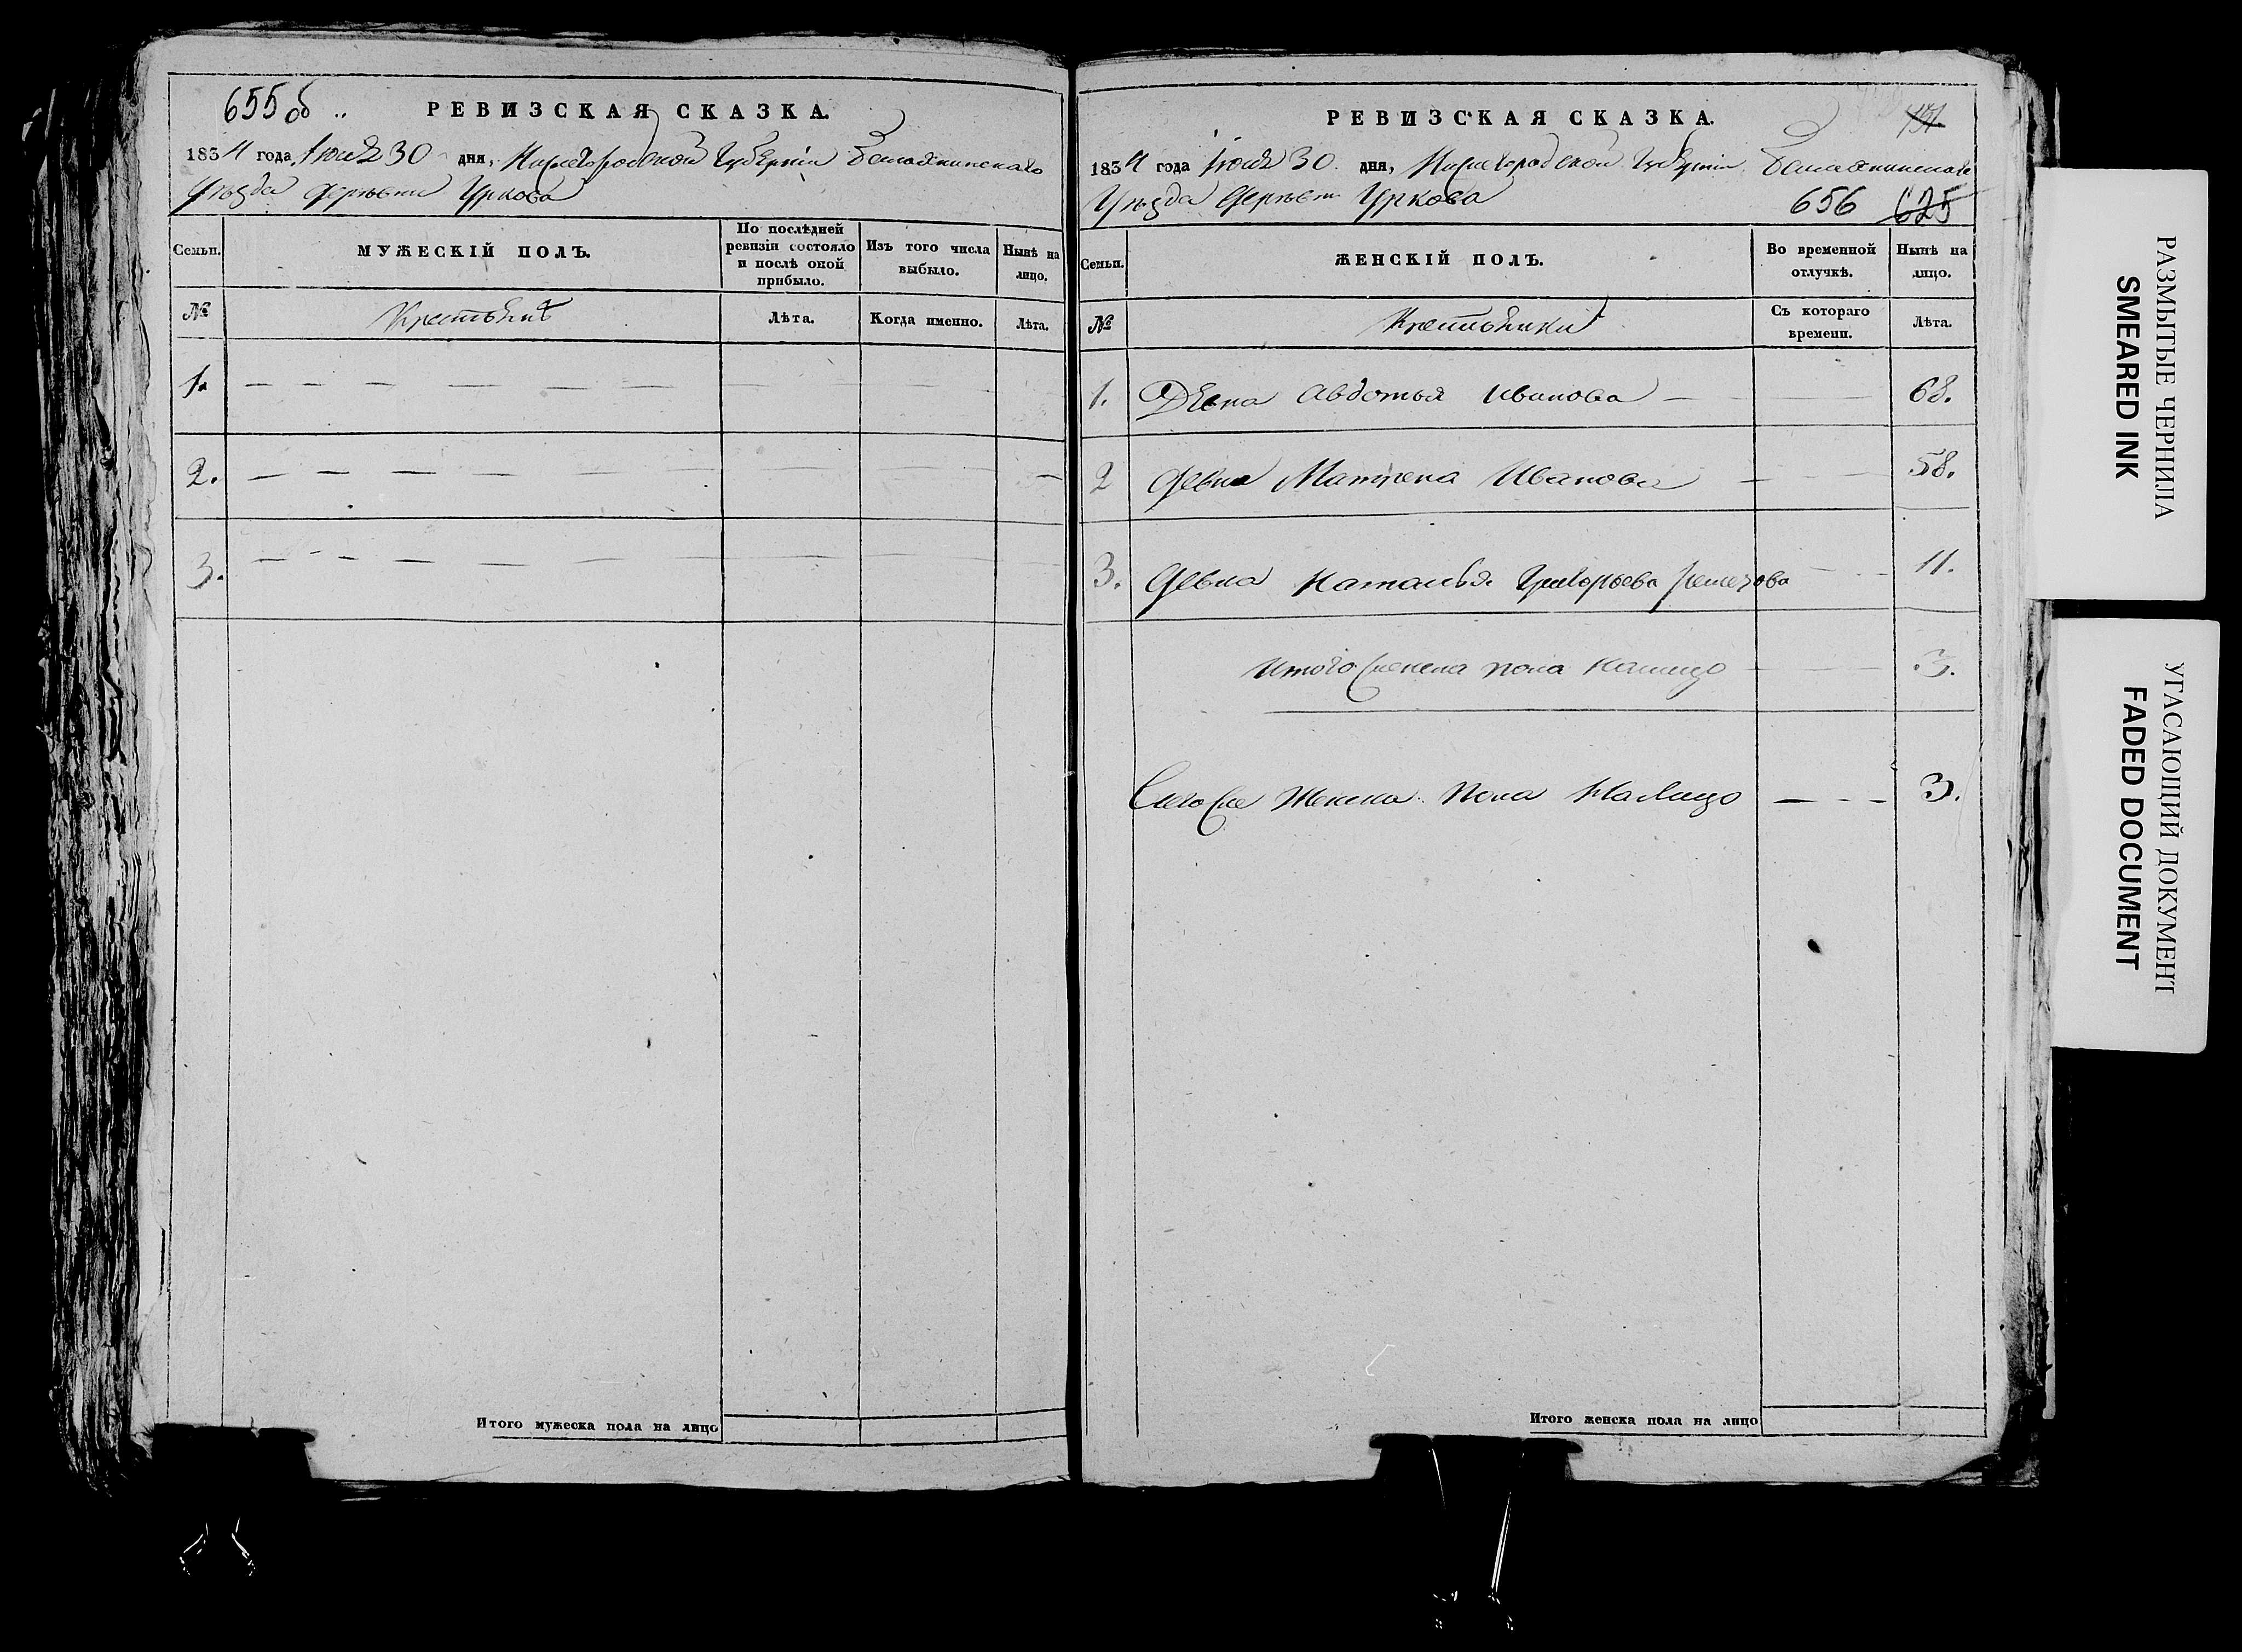 655 об
РЕВИЗСКАЯ СКАЗКА.
1834 года Июня 30 дня, Нижегородской Губернии
Уезда деревни Уркова
Семьи.
МУЖЕСКІЙ ПОЛЪ.
По послѣдней ревизіи состояло и послѣ оной прибыло.
Изъ того числа выбыло.
Нынѣ на лицо.
№
Лѣта.
Когда именно.
Лѣта.
1.
2.
3.
Итого мужеска пола на лицо
РЕВИЗСКАЯ СКАЗКА.
1834 года Июня 30 дня, Нижегородской Губернии
Уезда деревни Уркова 656 625
Семьи.
ЖЕНСКІЙ ПОЛЪ.
Во временной отлучкѣ.
Нынѣ на лицо.
№
Съ котораго времени.
Лѣта.
1. Девка Авдотья Иванова 68.
2 Девка Матрена Иванова 58.
3. Девка Наталья Григорьева 11.
Итого женска пола налицо 3.
женска пола на лицо 3.
Итого женска пола на лицо
РАЗМЫТЫЕ ЧЕРНИЛА
SMEARED INK
УГАСАЮЩИЙ ДОКУМЕНТ
FADED DOCUMENT